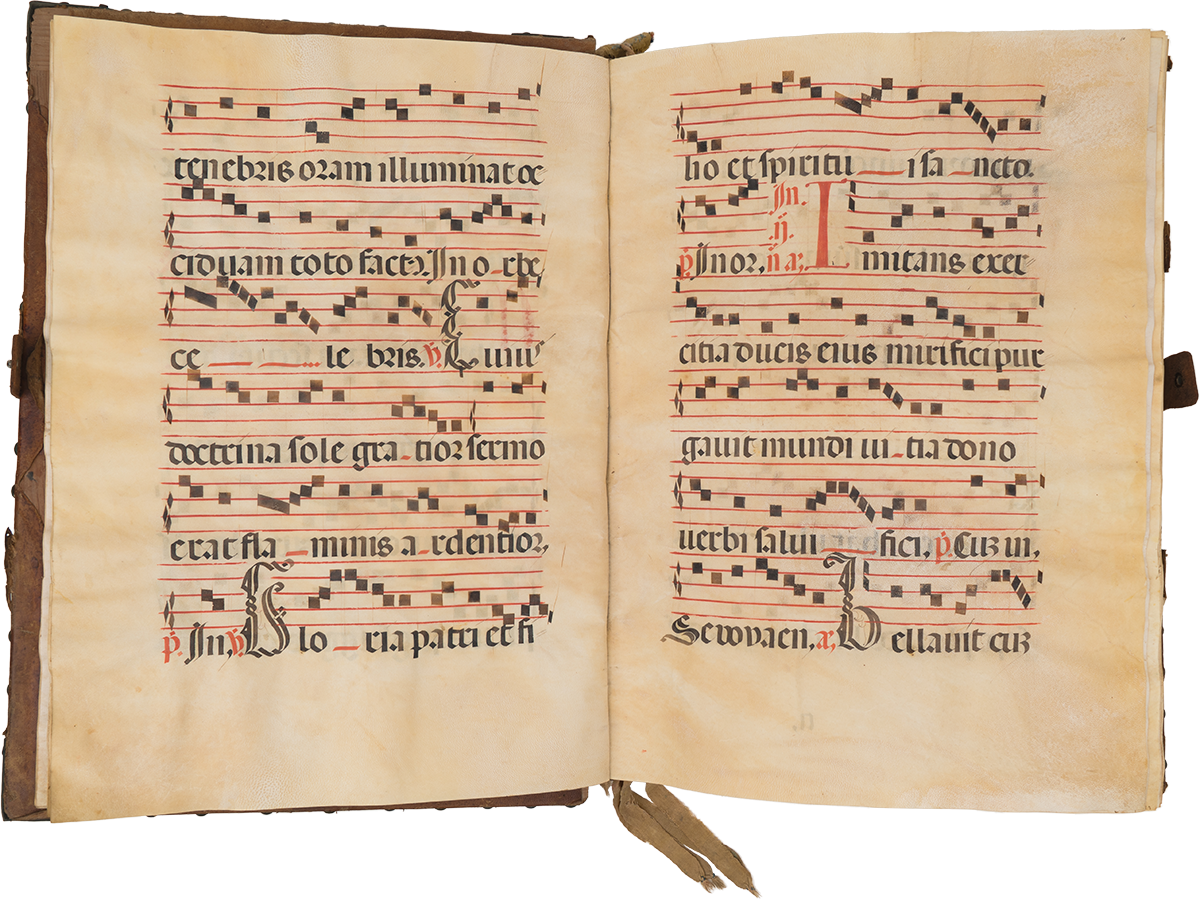 tenebris oram illuminat oc
ciduam toto facto. In o-rbe,
ce le bris. ℣. Cuius
doctrina sole gra-tior sermo
erat fla-minis a-rdentior,
p. In, ℣. Glo-ria patri et fi
lio et spiritu-i sa-ncto.
In.
ii.
p. In or, n a,
I mitans exer
citia ducis eius mirifici pur
gauit mundi ui-tia dono
uerbi salui-fici, p. Cuz in,
Seuouaen, a, Debellauit cuz